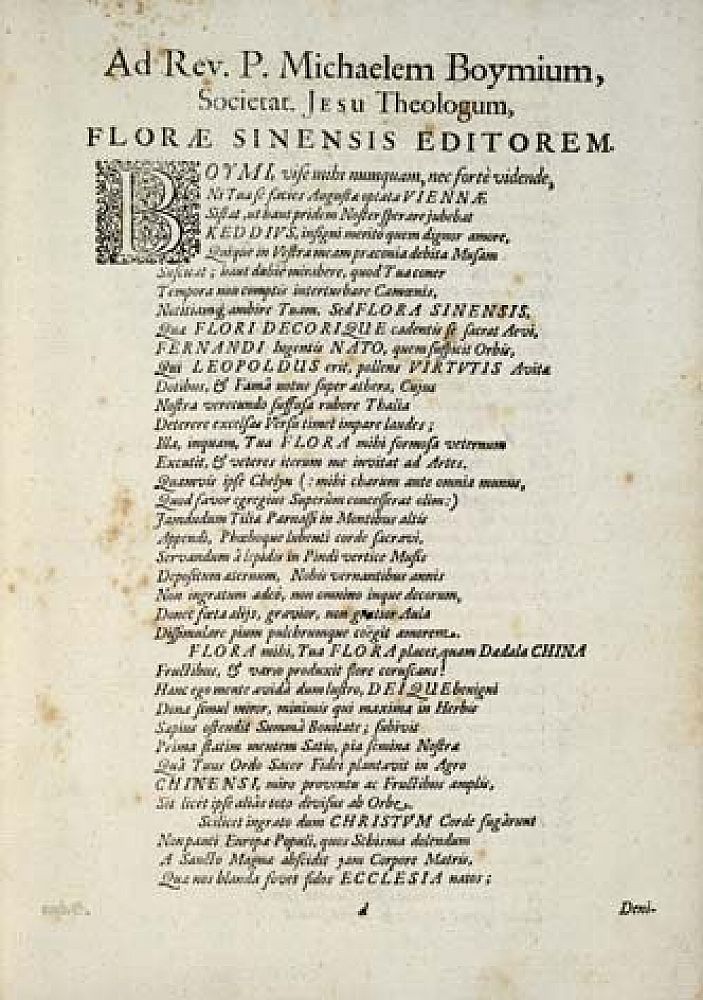 Ad Rev. P. Michaelem Boymium,
Societat. Jesu Theologum,
FLORÆ SINENSIS EDITOREM.
BOYMI, vise mihi nunquam, nec fortè vidende,
Ni Tua se facies Augustæ optata VIENNÆ
Sistat, ut haut pridem Noster sperare jubebat
KEDDIVS, insigni meritò quem dignor amore,
Quique in Vestra meam præconia debita Musam
Suscitat; haut dubiè mirabere, quod Tua coner
Tempora non comptis interturbare Camœnis,
Notitiamq́; ambire Tuam. Sed FLORA SINENSIS,
Quæ FLORI DECORIQUE cadentis se sacrat Aevi,
FERNANDI Ingentis NATO, quem suspicit Orbis,
Qui LEOPOLDUS erit, pollens VIRTVTIS Avitæ
Dotibus, & Famâ notus super æthera, Cujus
Nostra verecundo suffusa rubore Thalia
Deterere excelsas Versu timet impare laudes;
Illa, inquam, Tua FLORA mihi formosa veternum
Excutit, & veteres iterum me invitat ad Artes.
Quamvis ipse Chelyn (: mihi charum ante omnia munus,
Quod favor egregius Superûm concesserat olim:)
Jamdudum Tilia Parnassi in Montibus altis
Appendi, Phœboque lubenti corde sacravi,
Servandum à lepidis in Pindi vertice Musis
Depositum æternum, Nobis vernantibus annis
Non ingratum adeò, non omnino inque decorum,
Donec fœta alijs, gravior, non gratior Aula
Dissimulare pium pulchrumque coëgit amorem.
FLORA mihi, Tua FLORA placet, quam Dædala CHINA
Fructibus, & vario produxit flore coruscans!
Hanc ego mente avidâ dum lustro, DEIQUE benigni
Dona simul miror, minimis qui maxima in Herbis
Sæpius ostendit Summâ Bonitate; subivit
Prima statim mentem Satio, pia semina Nostræ
Quâ Tuus Ordo Sacer Fidei plantavit in Agro
CHINENSI, miro proventu ac Fructibus amplis,
Sit licet ipse aliàs toto divisus ab Orbe.
Scilicet ingrato dum CHRISTVM Corde fugârunt
Non pauci Europæ Populi, quos Schisma dolendum
A Sancto Magnæ abscidit jam Corpore Matris,
Quæ nos blanda fovet fidos ECCLESIA natos;
d
Deni-